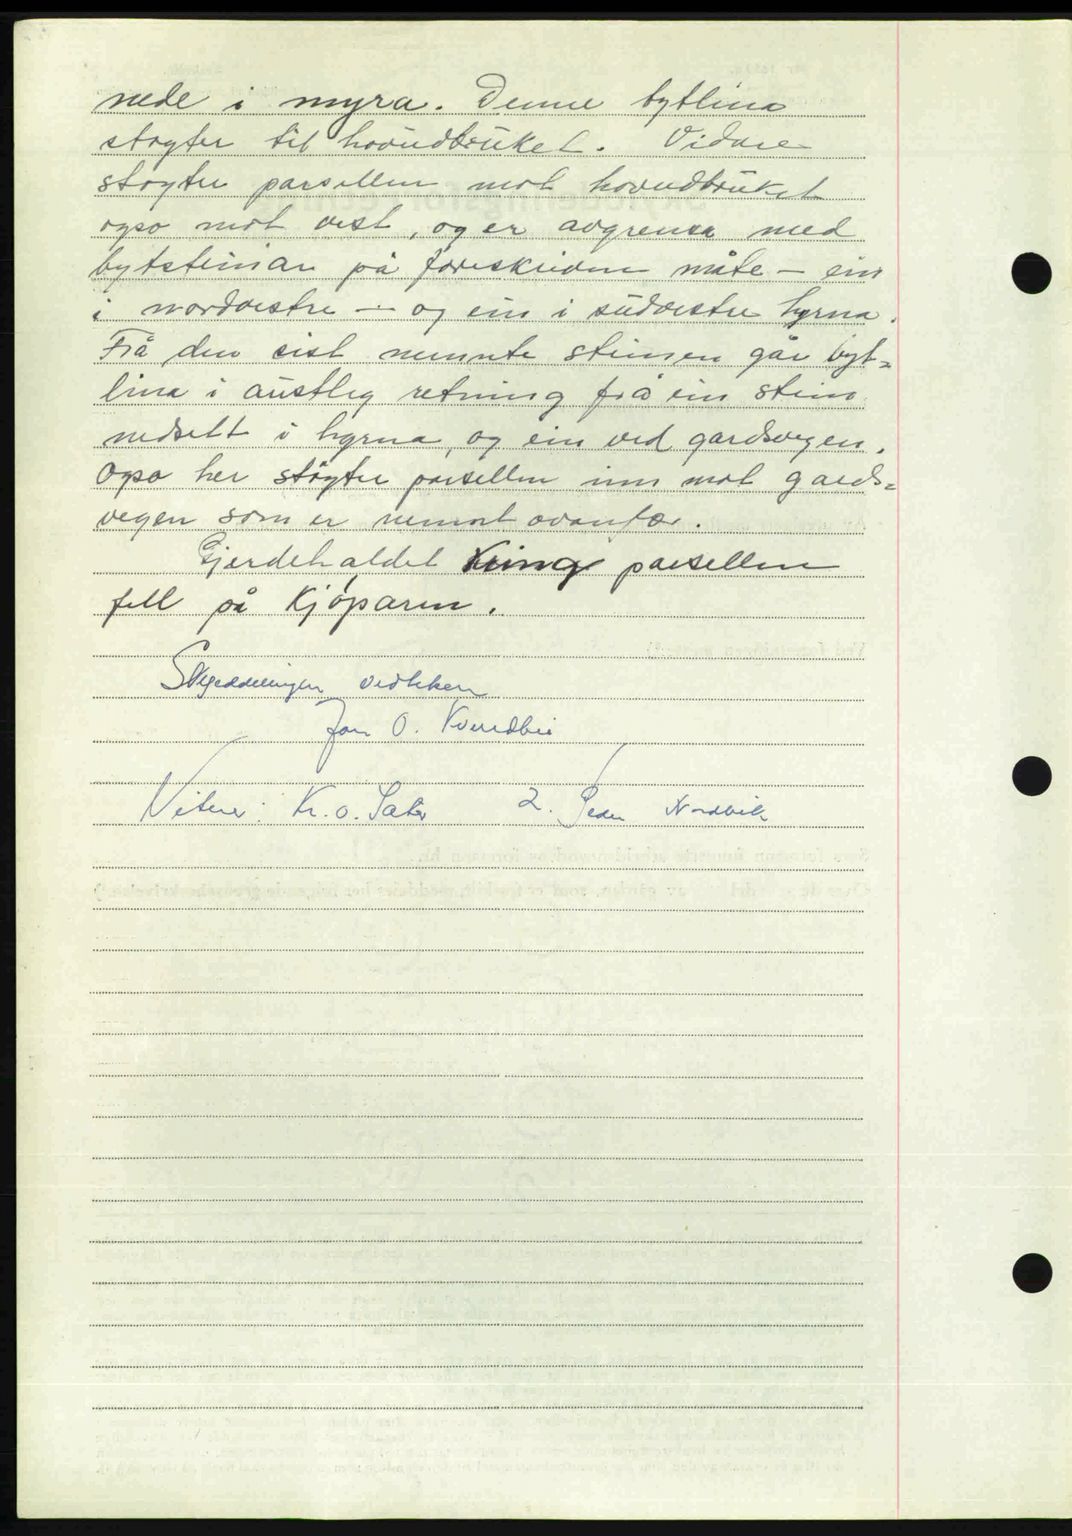 nede i myra. Denne bytlina
støyter til hovudbruket. Vidare
støyter parsellen mot hovudbruket
ogso mot vest, og er avgrensa med
bytsteinar på foreskriven måte – ein
i nordvestre – og ein i sudvestre hyrna.
Frå den sist nemnte steinen går byt=
lina i austleg retning frå ein stein
nedsett i hyrna, og ein ved gardsvegen.
Ogso her støyter parsellen inn mot gards=
vegen som er nemnt ovanfor.
Gjerdehaldet kring parsellen
fell på kjøparen.
Skyeddelingen vedtken
Jon O. Kvendbø
Vitner: Kr. O. Sæter 2. Peder Nordvik